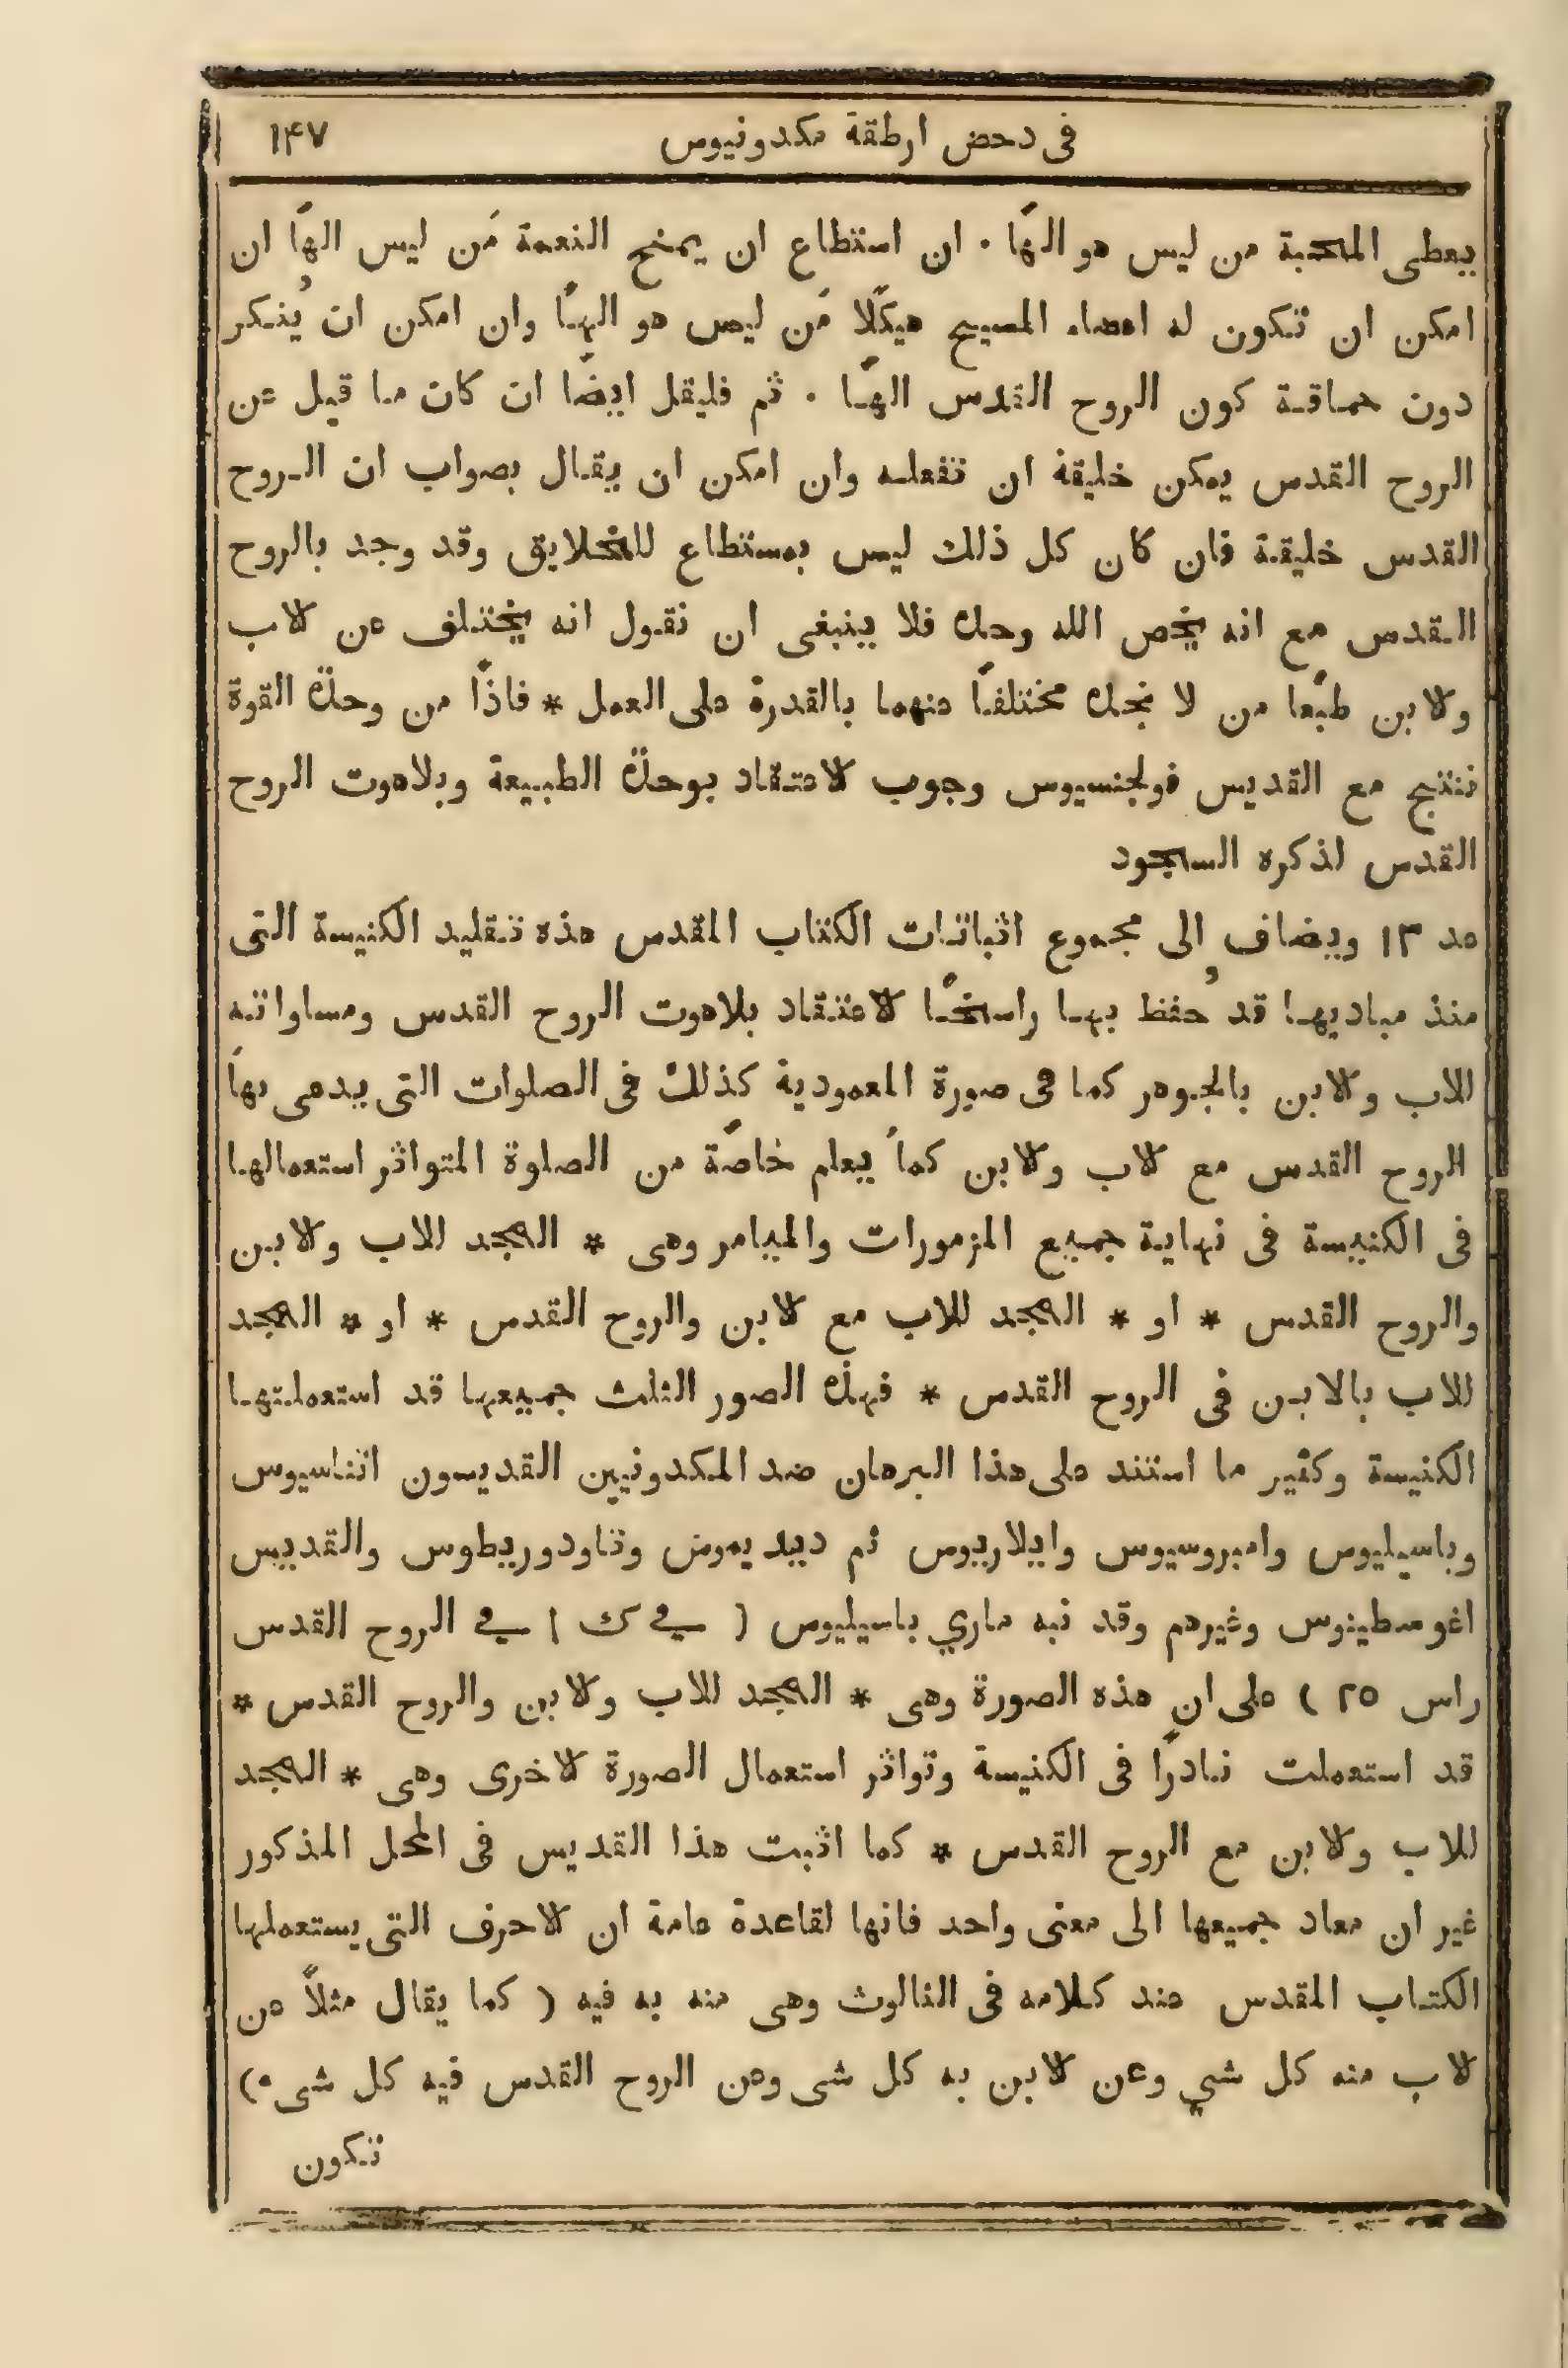 فى دحض ارطقة مكدونيوس ١٤٧
يعطى المحبة من ليس هو الهًا . ان استطاع ان يمنح النعمة مَن ليس الهًا ان
امكن ان تكون له اعضاء المسيح هيكلًا مَن ليس هو الهًا وان امكن ان يُنكر
دون حماقة كون الروح القدس الهًا . ثم فليقل ايضًا ان كان ما قيل عن
الروح القدس يمكن خليقة ان تفعله وان امكن ان يقال بصواب ان الروح
القدس خليقة فان كان كل ذلك ليس بمستطاع للخلايق وقد وجد بالروح
القدس مع انه يخص الله وحده فلا ينبغى ان نقول انه يختلف عن الاب
والابن طبعًا من لا نجده مختلفًا عنهما بالقدرة على العمل * فاذًا من وحدة القوة
ننتج مع القديس فولجنسيوس وجوب الاعتقاد بوحدة الطبيعة وبلاهوت الروح
القدس لذكره السجود
عد ١٣ ويضاف الى مجموع اثباتات الكتاب المقدس هذه تقليد الكنيسة التى
منذ مباديها قد حُفظ بها راسخًا الاعتقاد بلاهوت الروح القدس ومساواته
للاب والابن بالجوهر كما فى صورة المعمودية كذلك فى الصلوات التى يدعى بها
الروح القدس مع الاب والابن كما يعلم خاصًة من الصلوة المتواثر استعمالها
فى الكنيسة فى نهاية جميع المزمورات والميامر وهى * المجد للاب والابن
والروح القدس * او * المجد للاب مع الابن والروح القدس * او * المجد
للاب بالابن فى الروح القدس * فهذه الصور الثلث جميعها قد استعملتها
الكنيسة وكثير ما استند على هذا البرهان ضد المكدونيين القديسون اثناسيوس
وباسيليوس وامبروسيوس وايلاريوس ثم ديديموس وتاودوريطوس والقديس
اغوسطينوس وغيرهم وقد نبه ماري باسيليوس ( في ك ١ في الروح القدس
راس ٢٥ ) على ان هذه الصورة وهى * المجد للاب والابن والروح القدس *
قد استعملت نادرًا فى الكنيسة وتواثر استعمال الصورة الاخرى وهى * المجد
للاب والابن مع الروح القدس * كما اثبت هذا القديس فى المحل المذكور
غير ان معاد جميعها الى معنى واحد فانها لقاعدة عامة ان الاحرف التى يستعملها
الكتاب المقدس عند كلامه فى الثالوث وهى منه به فيه ( كما يقال مثلًا عن
الاب منه كل شي وعن الابن به كل شى وعن الروح القدس فيه كل شى . )
تكون